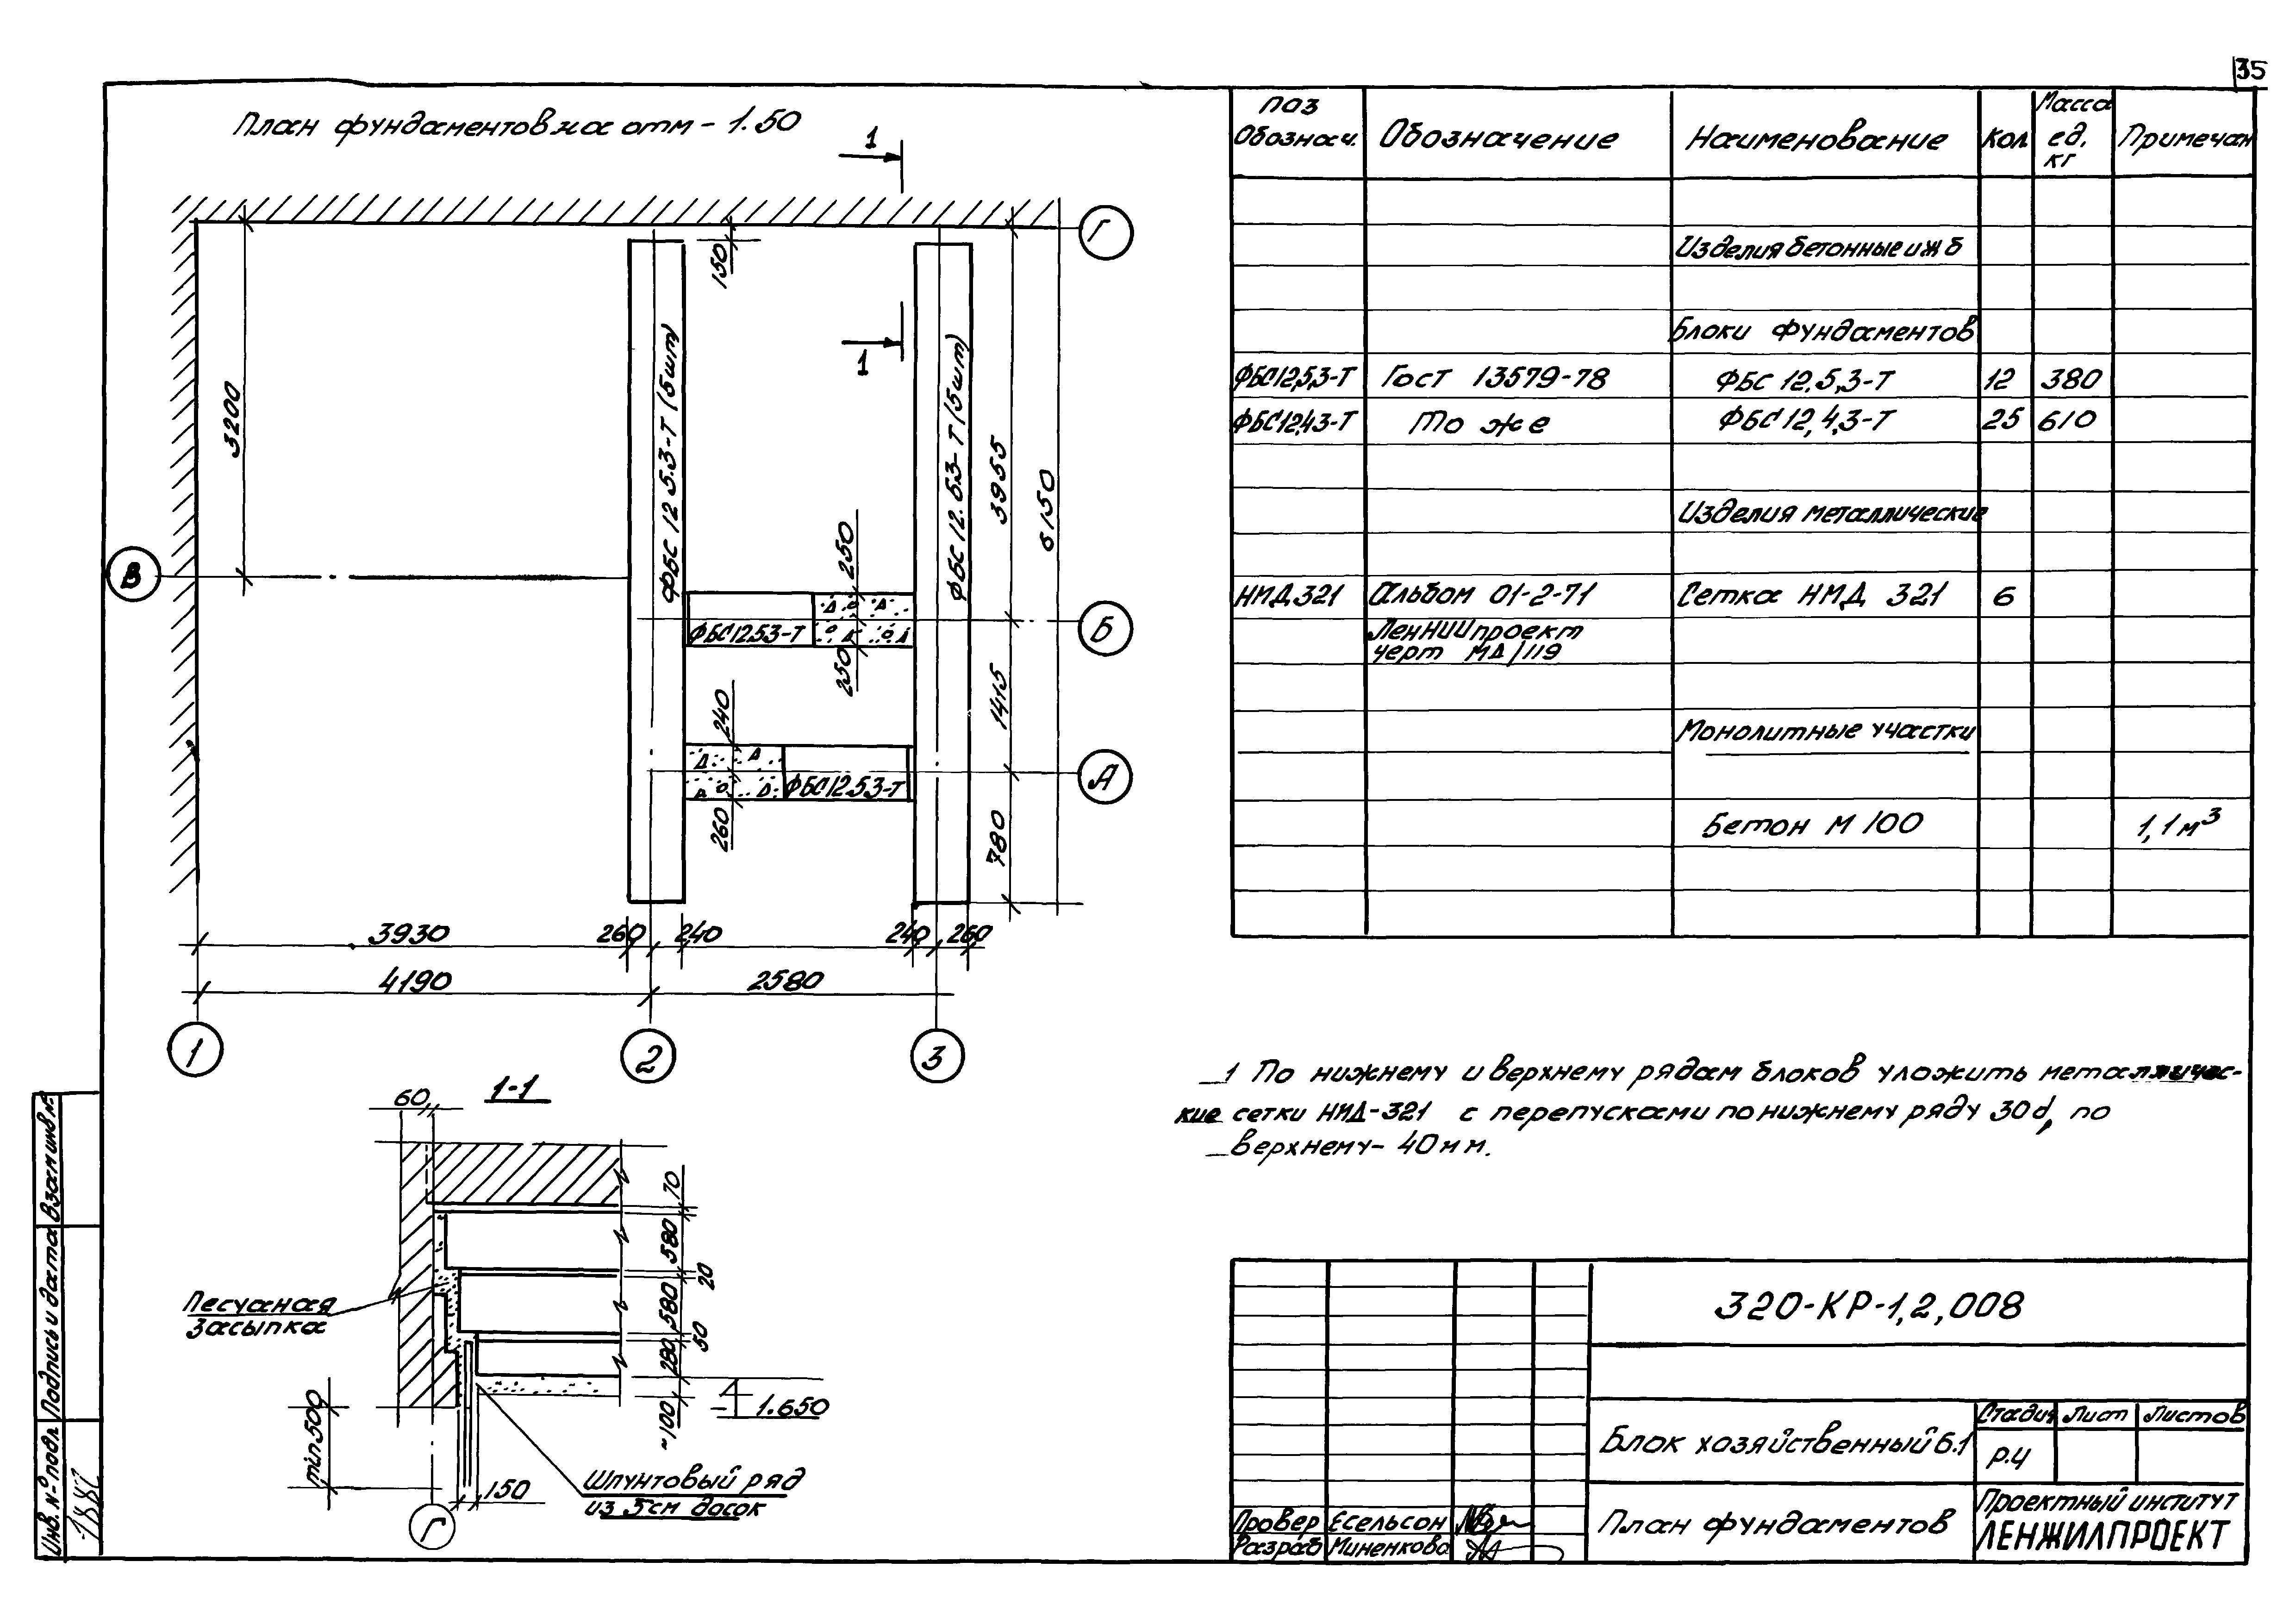 35
План фундаментов на отм - 1.50
1
1
Г
В
Б
А
3200
150
ФБС 12 5.3-Т (5шт)
ФБС 12. 5.3-Т (5шт)
3955
6150
250
250
ФБС12.5.3-Т
1415
240
260
ФБС12.5.3-Т
780
3930
260
240
240
260
4190
2580
1
2
3
1-1
60
70
580
20
580
50
280
~100
1.650
Песчаная
засыпка
min500
150
Шпунтовый ряд
из 5см досок
Г
поз
Обознач.
Обозначение
Наименование
Кол
Масса
ед.
кг
Примечан
Изделия бетонные и ж б
Блоки фундаментов
ФБС12,5,3-Т Гост 13579-78 ФБС 12.5,3-Т 12 380
ФБС12,43-Т То же ФБС12,4,3-Т 25 610
Изделия металлические
НМД321 Альбом 01-2-71 Сетка НМД 321 6
ЛенНИИпроект
черт МД/119
Монолитные участки
Бетон М 100 1,1м³
1 По нижнему и верхнему рядам блоков уложить металличес-
кие сетки НМД-321 с перепусками по нижнему ряду 30d, по
верхнему- 40мм.
320-КР-1,2,008
Блок хозяйственный Б.1
Стадия Лист Листов
Р.Ч
План фундаментов
Проектный институт
ЛЕНЖИЛПРОЕКТ
Провер Есельсон
Разраб Миненкова
Взам инв №
Подпись и дата
Инв. № подл